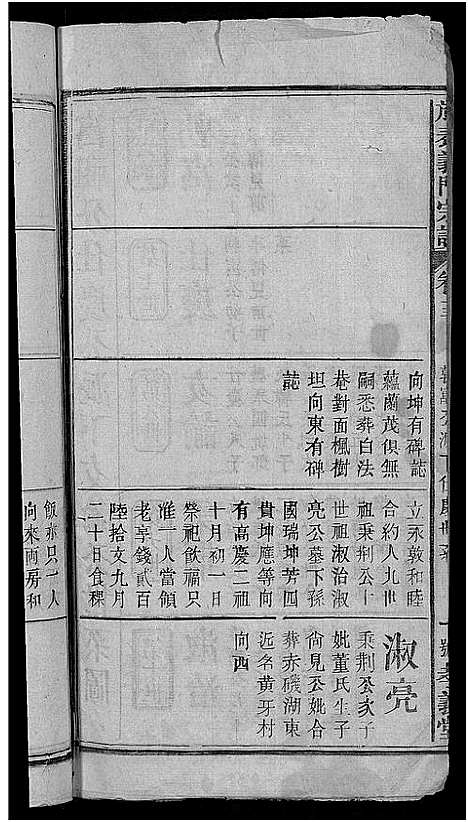 義門宗譜
卷三
孝義堂
向坤有碑誌
蘊蘭茂俱無
嗣悉葬白法
巷對面楓樹
坦向東有碑
誌
立永敦和睦
合約人九世
祖秉荆公十
世祖淑治淑
亮公墓下孫
國瑞坤芳四
貴坤應等向
有高慶二祖
十月初一日
祭祀飲福只
准一人當領
老享錢貳百
陸拾文九月
二十日食粿
飯亦只一人
向來兩房和
淑亮
秉荆公次子
妣董氏生子
尚見公妣合
葬赤磯湖東
近名黄牙村
向西